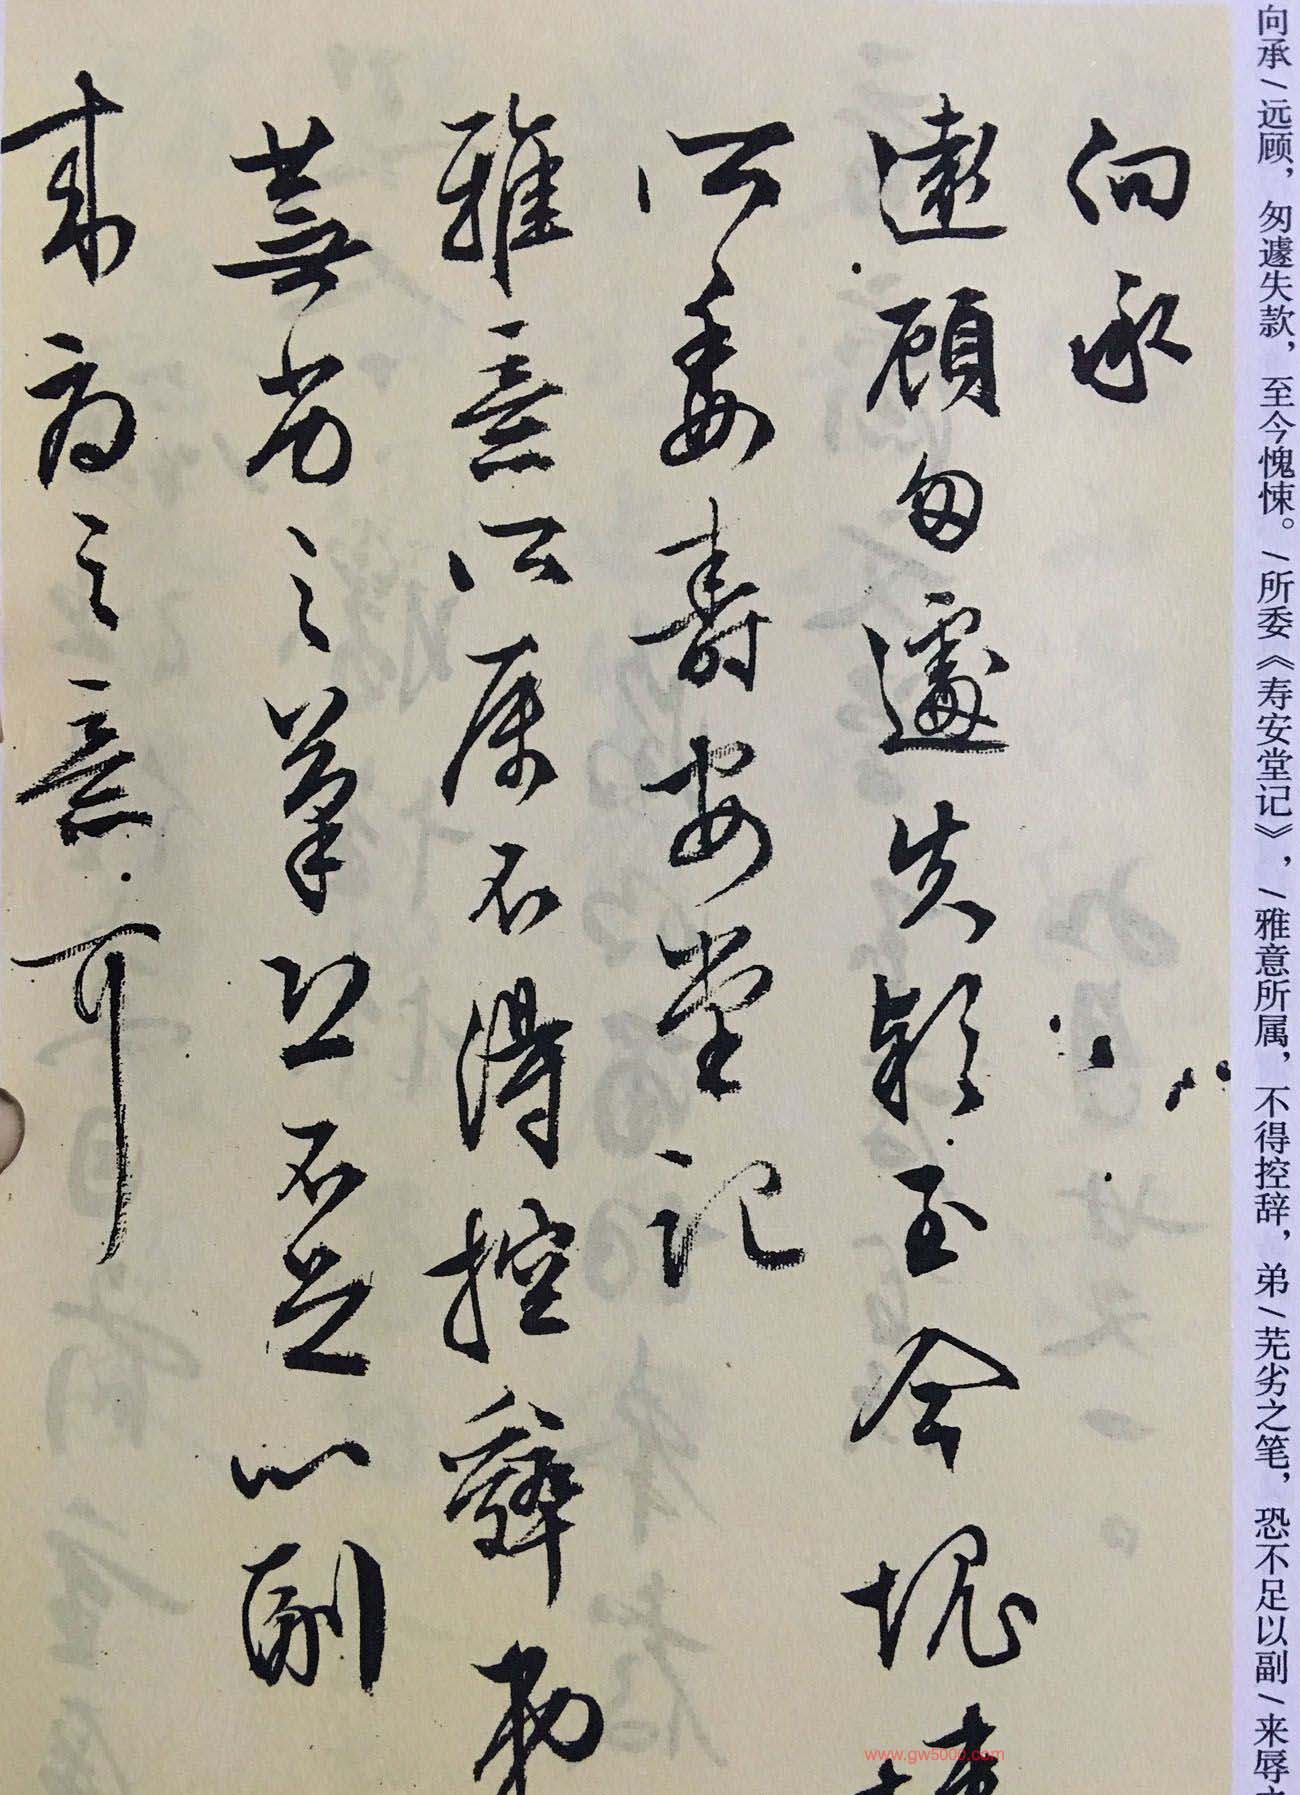 向承/远顾，匆遽失款，至今愧悚。/所委《寿安堂记》，/雅意所属，不得控辞，弟/芜劣之笔，恐不足以副/来辱
向承
遠顧匆遽失款至今愧悚
所委壽安堂記
雅意所属不得控辭弟
蕪劣之筆恐不足以副
来辱之意耳
www.gw5000.com